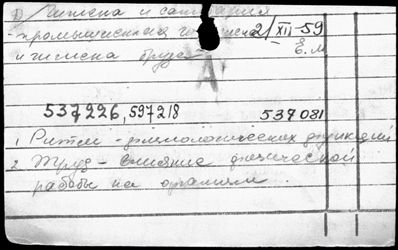 Гигиена и санитария
промышленная гигиена 2/XII-59
и гигиена труда Е.М
А
537226, 597218 537081
1 Ритм - физиологических функций
2 Труд - влияние физической
работы на организм.